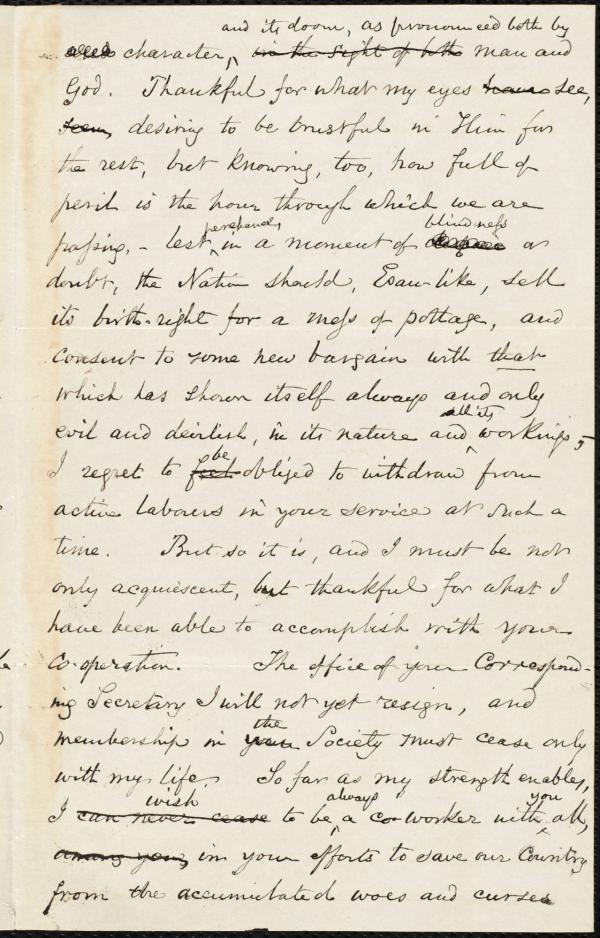 and its doom, as pronounced both by
character, in the sight of both man and
God. Thankful for what my eyes have see,
seen, desiring to be trustful in Him for
the rest, but knowing, too, how full of
peril is the hour through which we are
perchance, blindness
passing, - lest in a moment of despair or
doubt, the Nation should, Esau-like, sell
its birth-right for a mess of pottage, and
consent to some new bargain with that
which has shown itself always and only
all its
evil and devilish, in its nature and workings,
be
I regret to feel obliged to withdraw from
active labours in your service at such a
time. But so it is, and I must be not
only acquiescent, but thankful for what I
have been able to accomplish with your
co-operation. The office of your Correspond-
ing Secretary I will not yet resign, and
the
membership in your Society must cease only
with my life. So far as my strength enables,
wish always you
I can never cease to be a co-worker with all,
among you, in your efforts to save our Country
from the accumulated woes and curses